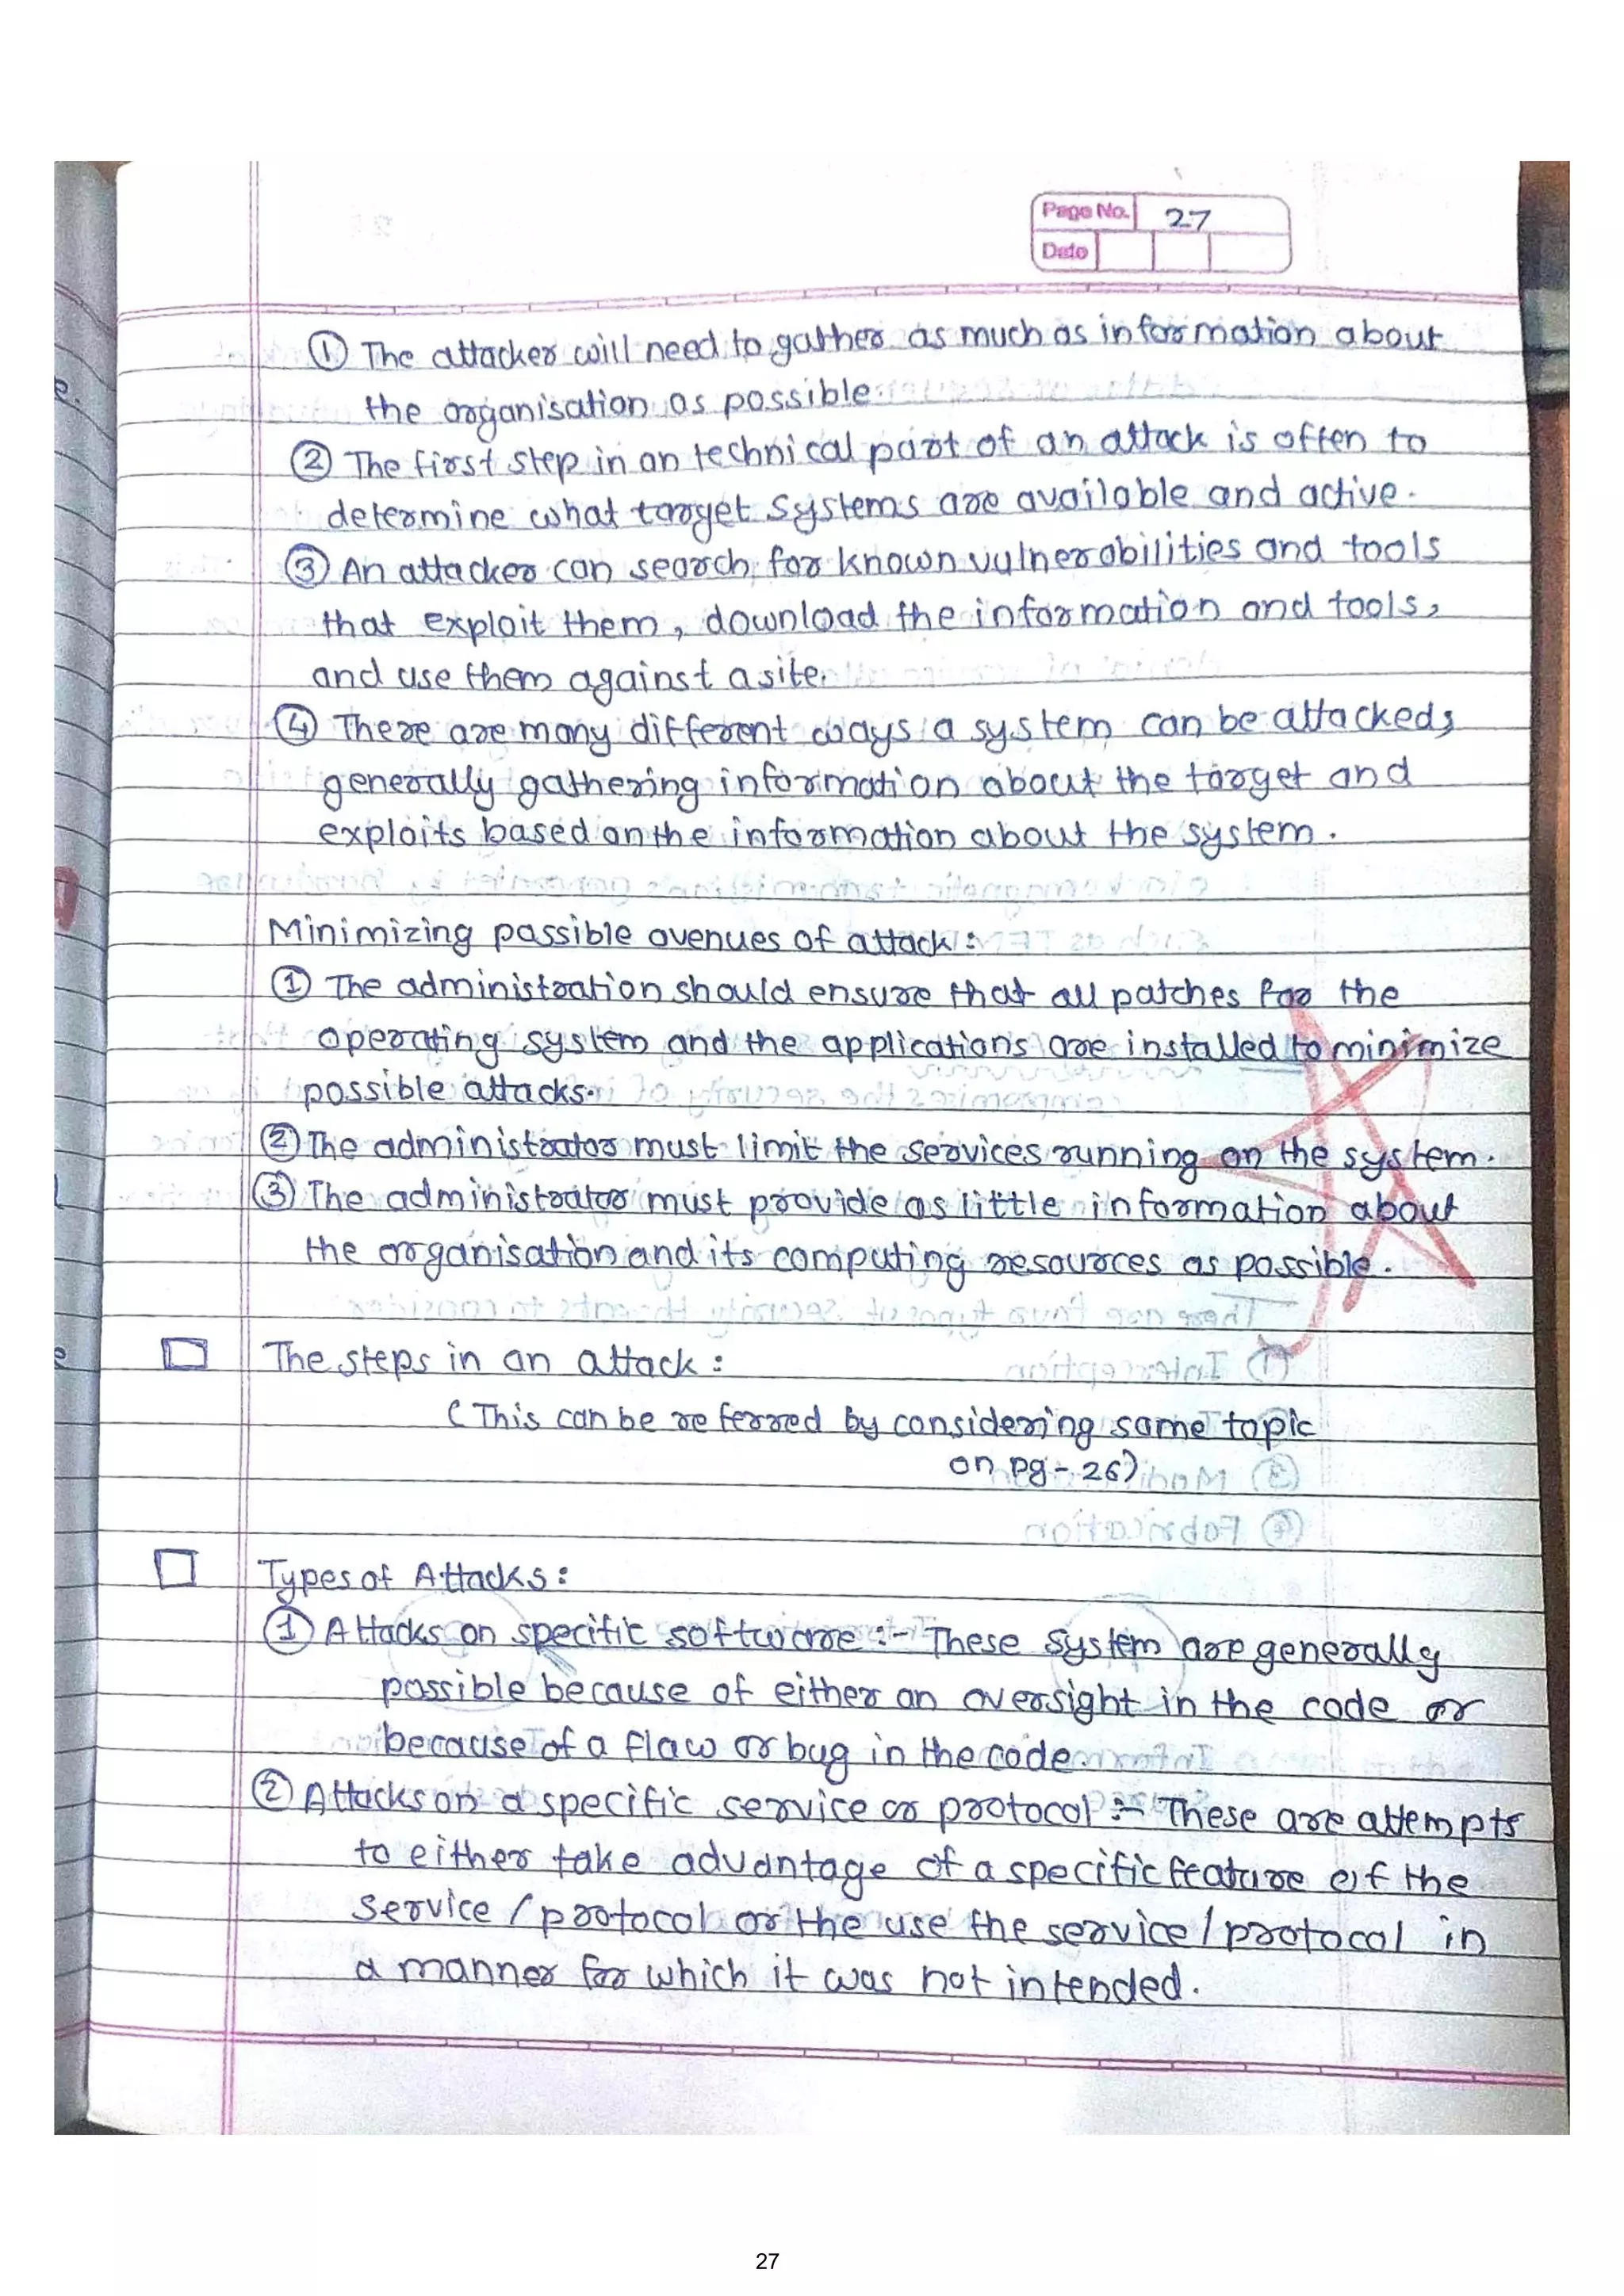 Page No. 27
Date
① The attacker will need to gather as much as information about
the organisation as possible.
② The first step in an technical part of an attack is often to
determine what target systems are available and active.
③ An attacker can search for known vulnerabilities and tools
that exploit them, download the information and tools,
and use them against a site.
④ There are many different ways a system can be attacked,
generally gathering information about the target and
exploits based on the information about the system.
Minimizing possible avenues of attack :
① The administration should ensure that all patches for the
operating system and the applications are installed to minimize
possible attacks.
② The administrator must limit the services running on the system.
③ The administrator must provide as little information about
the organisation and its computing resources as possible.
The steps in an attack :
(This can be referred by considering same topic
on pg - 26)
Types of Attacks :
① Attacks on specific software :- These system are generally
possible because of either an oversight in the code or
because of a flaw or bug in the code.
② Attacks on a specific service or protocol :- These are attempts
to either take advantage of a specific feature of the
service / protocol or the use the service / protocol in
a manner for which it was not intended.
27